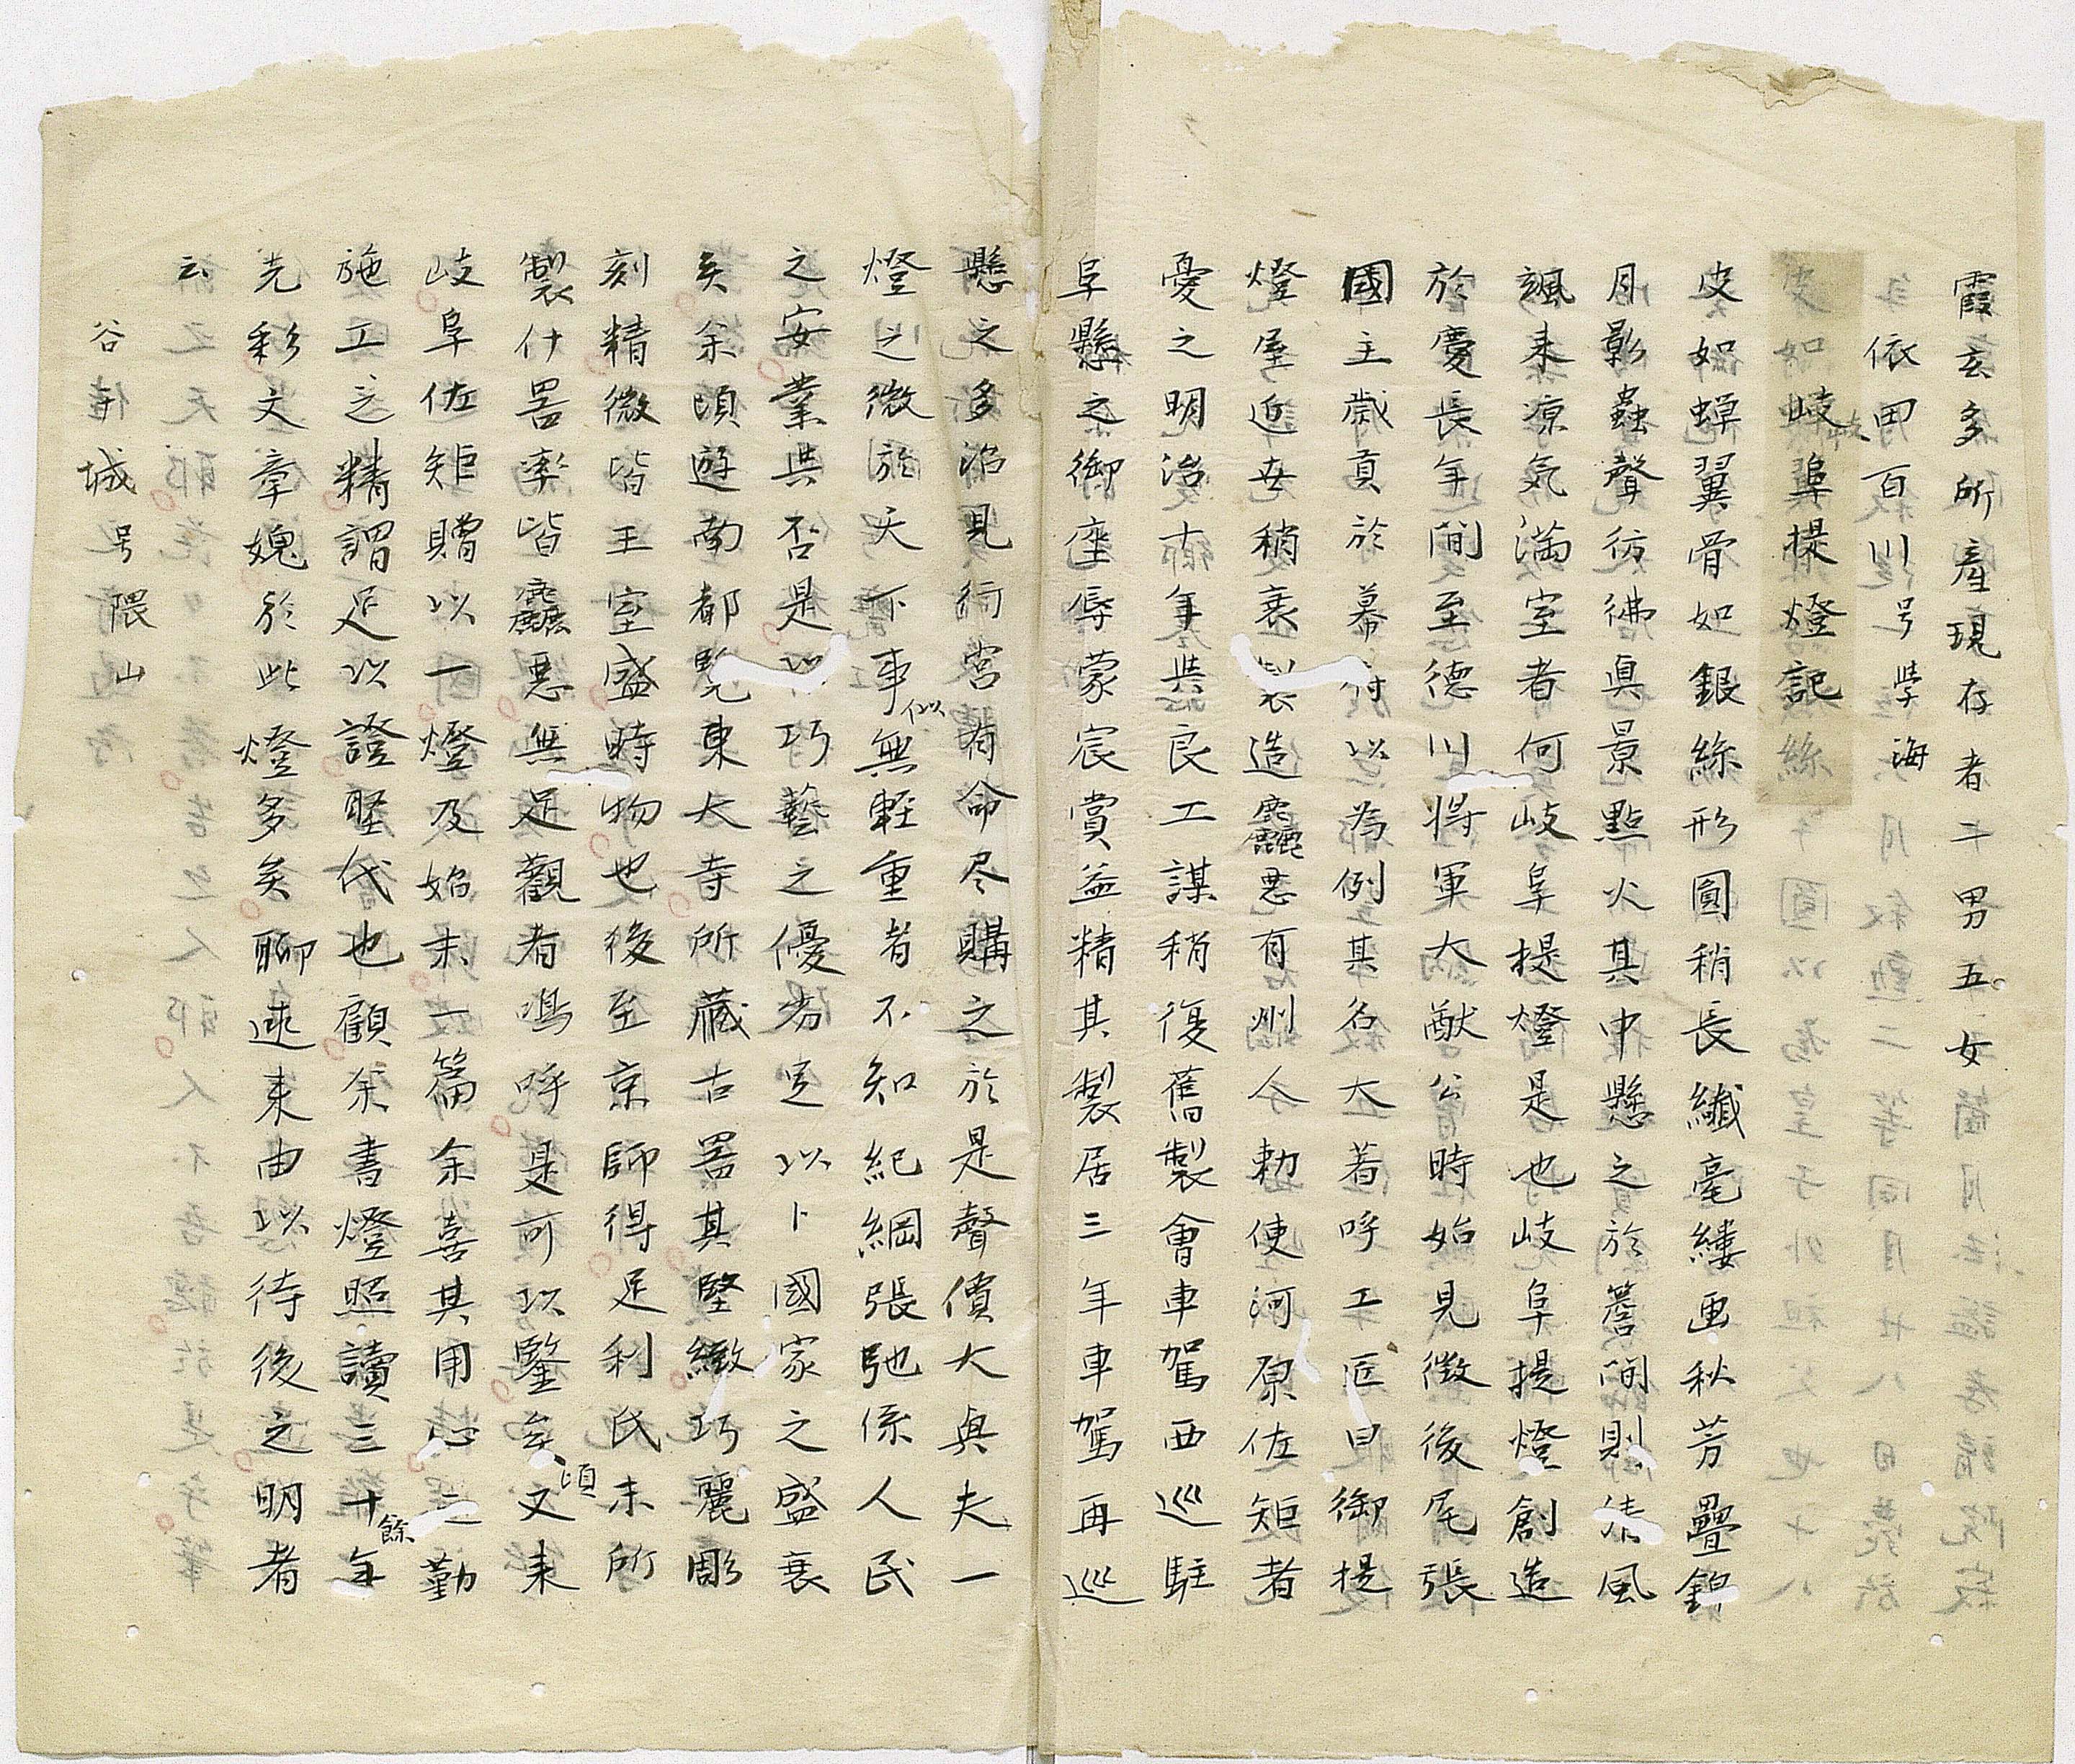 霞玄多所産現存者二男五女
依田百川号学海
岐阜提燈記
皮如蟬翼骨如銀絲形圓稍長纖毫縷画秋芳疊錦
月影蟲聲彷彿真景點火其中懸之於簷間則清風
颯来凉気滿室者何岐阜提燈是也岐阜提燈創造
於慶長年間至德川将軍大猷公時始見徵後尾張
國主歳貢於幕府以為例其名大著呼工匠曰御提
燈屋近世稍衰製造麤悪有州人勅使河原佐矩者
憂之明治十年与良工謀稍復舊製會車駕西巡駐
阜懸之御座辱蒙宸賞益精其製居三年車駕再巡
懸之多治見行宮有命尽購之於是聲價大興夫一
燈之微於天下事似無輕重者不知紀綱張弛係人民
之安業与否是以巧藝之優劣足以卜國家之盛衰
矣余頃遊南都覽東大寺所藏古器其堅緻巧麗彫
刻精微皆王室盛時物也後至京師得足利氏末所
製什器率皆麤悪無足觀者嗚呼是可以鑒矣頃又来
岐阜佐矩贈以一燈及始末一篇余喜其用心之勤
施工之精謂足以證聖代也顧余書燈照讀三十餘年
光彩文章媿於此燈多矣聊述来由以待後之明者
云
谷僅城号隈山